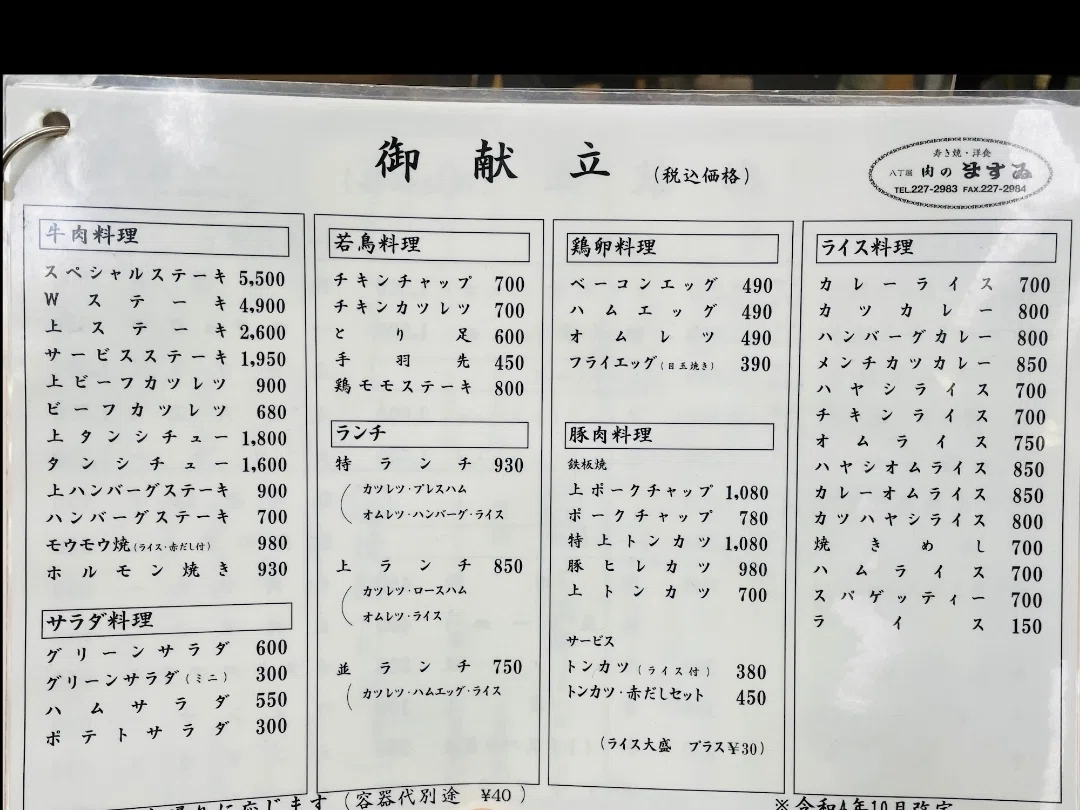 御献立 (税込価格)
寿き焼・洋食
八丁堀 肉の ますゐ
TEL.227-2983 FAX.227-2984
牛肉料理
スペシャルステーキ 5,500
Wステーキ 4,900
上ステーキ 2,600
サービスステーキ 1,950
上ビーフカツレツ 900
ビーフカツレツ 680
上タンシチュー 1,800
タンシチュー 1,600
上ハンバーグステーキ 900
ハンバーグステーキ 700
モウモウ焼(ライス・赤だし付) 980
ホルモン焼き 930
サラダ料理
グリーンサラダ 600
グリーンサラダ(ミニ) 300
ハムサラダ 550
ポテトサラダ 300
若鳥料理
チキンチャップ 700
チキンカツレツ 700
とり足 600
手羽先 450
鶏モモステーキ 800
ランチ
特ランチ 930
カツレツ・プレスハム
オムレツ・ハンバーグ・ライス
上ランチ 850
カツレツ・ロースハム
オムレツ・ライス
並ランチ 750
カツレツ・ハムエッグ・ライス
鶏卵料理
ベーコンエッグ 490
ハムエッグ 490
オムレツ 490
フライエッグ(目玉焼き) 390
豚肉料理
鉄板焼
上ポークチャップ 1,080
ポークチャップ 780
特上トンカツ 1,080
豚ヒレカツ 980
上トンカツ 700
サービス
トンカツ(ライス付) 380
トンカツ・赤だしセット 450
(ライス大盛 プラス¥30)
ライス料理
カレーライス 700
カツカレー 800
ハンバーグカレー 800
メンチカツカレー 850
ハヤシライス 700
チキンライス 700
オムライス 750
ハヤシオムライス 850
カレーオムライス 850
カツハヤシライス 800
焼きめし 700
ハムライス 700
スパゲッティー 700
ライス 150
に応じます (容器代別途 ¥40)
※令和4年10月改定